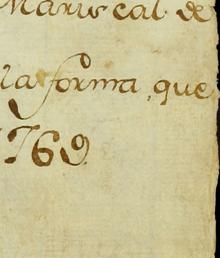 Mariscal de
la forma, que
1769